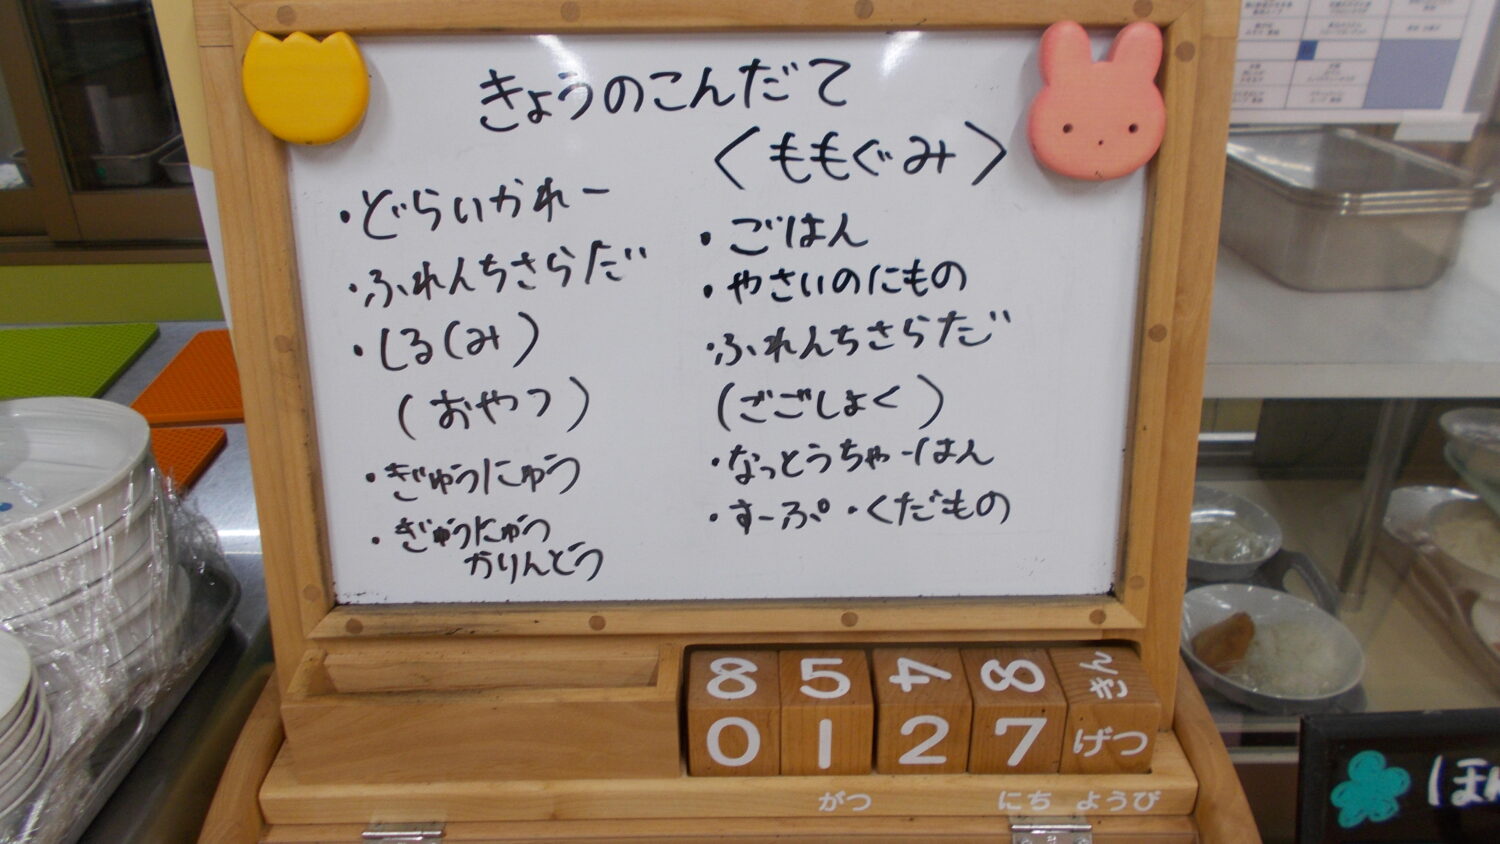 きょうのこんだて
〈ももぐみ〉
・どらいかれー
・ふれんちさらだ
・しる(み)
(おやつ)
・ぎゅうにゅう
・ぎゅうにゅう
かりんとう
・ごはん
・やさいのにもの
・ふれんちさらだ
(ごごしょく)
・なっとうちゃーはん
・すーぷ・くだもの
8 5 4 8 きん
0 1 2 7 げつ
がつ にち ようび